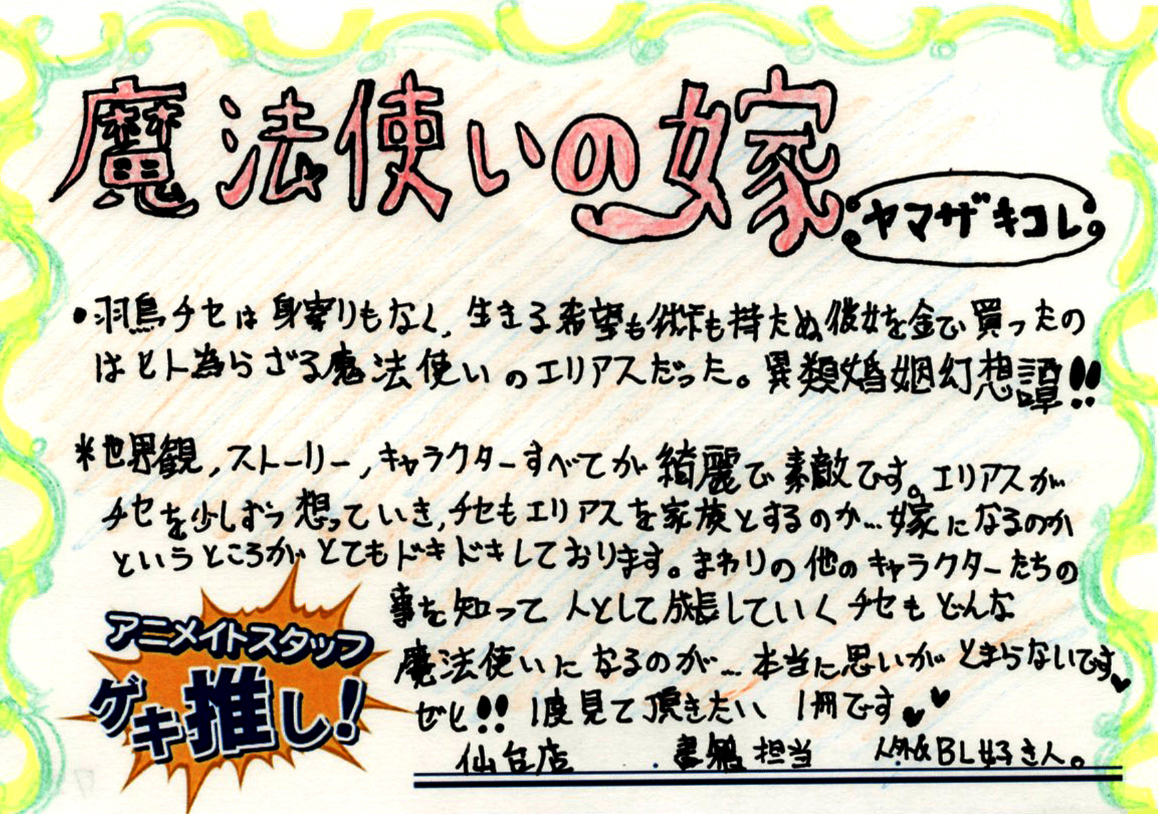 魔法使いの嫁
ヤマザキコレ
•羽鳥チセは身寄りもなく、生きる希望も術も持たぬ彼女を金で買ったの
はヒト為らざる魔法使いのエリアスだった。異類婚姻幻想譚!!
*世界観,ストーリー,キャラクターすべてが綺麗で素敵です。エリアスが
チセを少しずつ想っていき,チセもエリアスを家族とするのか…嫁になるのか
というところがとてもドキドキしております。まわりの他のキャラクターたちの
事を知って人として成長していくチセもどんな
魔法使いになるのかが…本当に思いがとまらないです♥
ゼヒ!!1度見て頂きたい1冊です♥♥
アニメイトスタッフ
ゲキ推し!
仙台店 書籍担当 人外&BL好きさん。